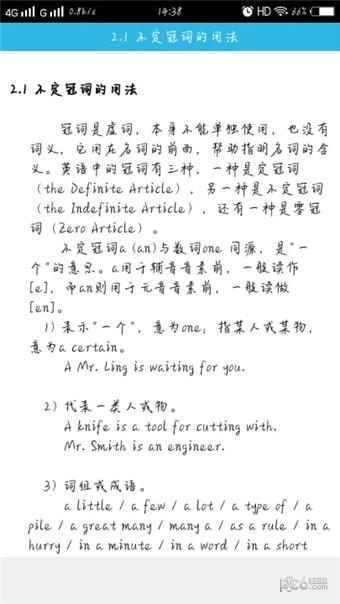 4G G 0.8k/s 14:38 HD 66%
2.1 不定冠词的用法
2.1 不定冠词的用法
冠词是虚词，本身不能单独使用，也没有
词义，它用在名词的前面，帮助指明名词的含
义。英语中的冠词有三种，一种是定冠词
（the Definite Article），另一种是不定冠词
（the Indefinite Article），还有一种是零冠
词（Zero Article）。
不定冠词a (an)与数词one 同源，是"一
个"的意思。a用于辅音音素前，一般读作
[e]，而an则用于元音音素前，一般读做
[en]。
1) 表示"一个"，意为one；指某人或某物，
意为a certain。
A Mr. Ling is waiting for you.
2) 代表一类人或物。
A knife is a tool for cutting with.
Mr. Smith is an engineer.
3) 词组或成语。
a little / a few / a lot / a type of / a
pile / a great many / many a / as a rule / in a
hurry / in a minute / in a word / in a short